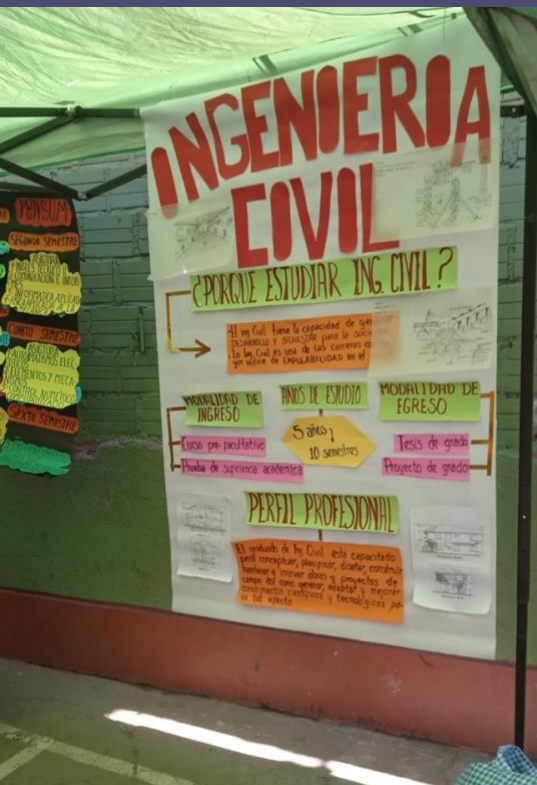 PENSUM
SEGUNDO SEMESTRE
ASIGTURA
INGLES TECNICO II
APLICADA
QUINTO SEMESTRE
ASIGTURA
ELEMENTOS Y MECA
NISMOS
CONTROL NUMERICO
SEXTO SEMESTRE
INGENIERIA
CIVIL
¿PORQUE ESTUDIAR ING. CIVIL?
El ing Civil tiene la capacidad de
DESARROLLO Y BIENESTAR para la
La Ing Civil es una de las carreras
EMPLEABILIDAD en el
MODALIDAD DE
INGRESO
Curso pre-facultativo
Prueba de suficiencia academica
AÑOS DE ESTUDIO
5 años y
10 semestres
MODALIDAD DE
EGRESO
Tesis de grado
Proyecto de grado
PERFIL PROFESIONAL
El graduado de Ing Civil esta capacitado
para conceptuar, planificar, diseñar, construir
mantener e innovar obras y proyectos de
campo asi como generar, adaptar y mejorar
conocimientos cientificos y tecnologicos pa-
ra tal efecto